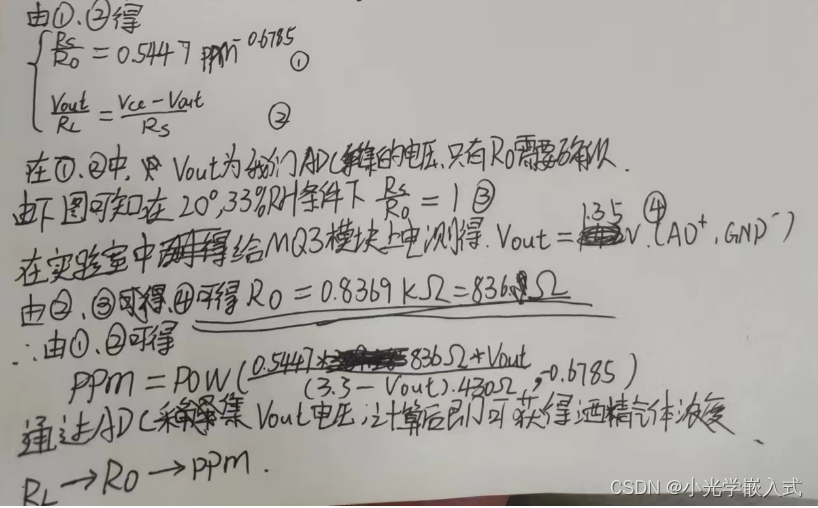 由①、②得
Rs/Ro = 0.5447 ppm^-0.6785 ①
Vout/RL = (Vcc-Vout)/Rs ②
在①、②中, Vout为我们ADC采集的电压,只有Ro需要确认.
由下图可知在20°,33%RH条件下 Rs/Ro = 1 ③
在实验室中给MQ3模块上电测得. Vout = 1.35V.④(AO+, GND-)
由②、③可得、④可得 Ro = 0.8369 kΩ = 836 Ω
∴由①、②可得
PPm = POW(0.5447* 836Ω*Vout/(3.3-Vout).430Ω, -0.6785)
通过ADC采集Vout电压,计算后即可获得酒精气体浓度、
RL→RO→PPM.
CSDN @小光学嵌入式